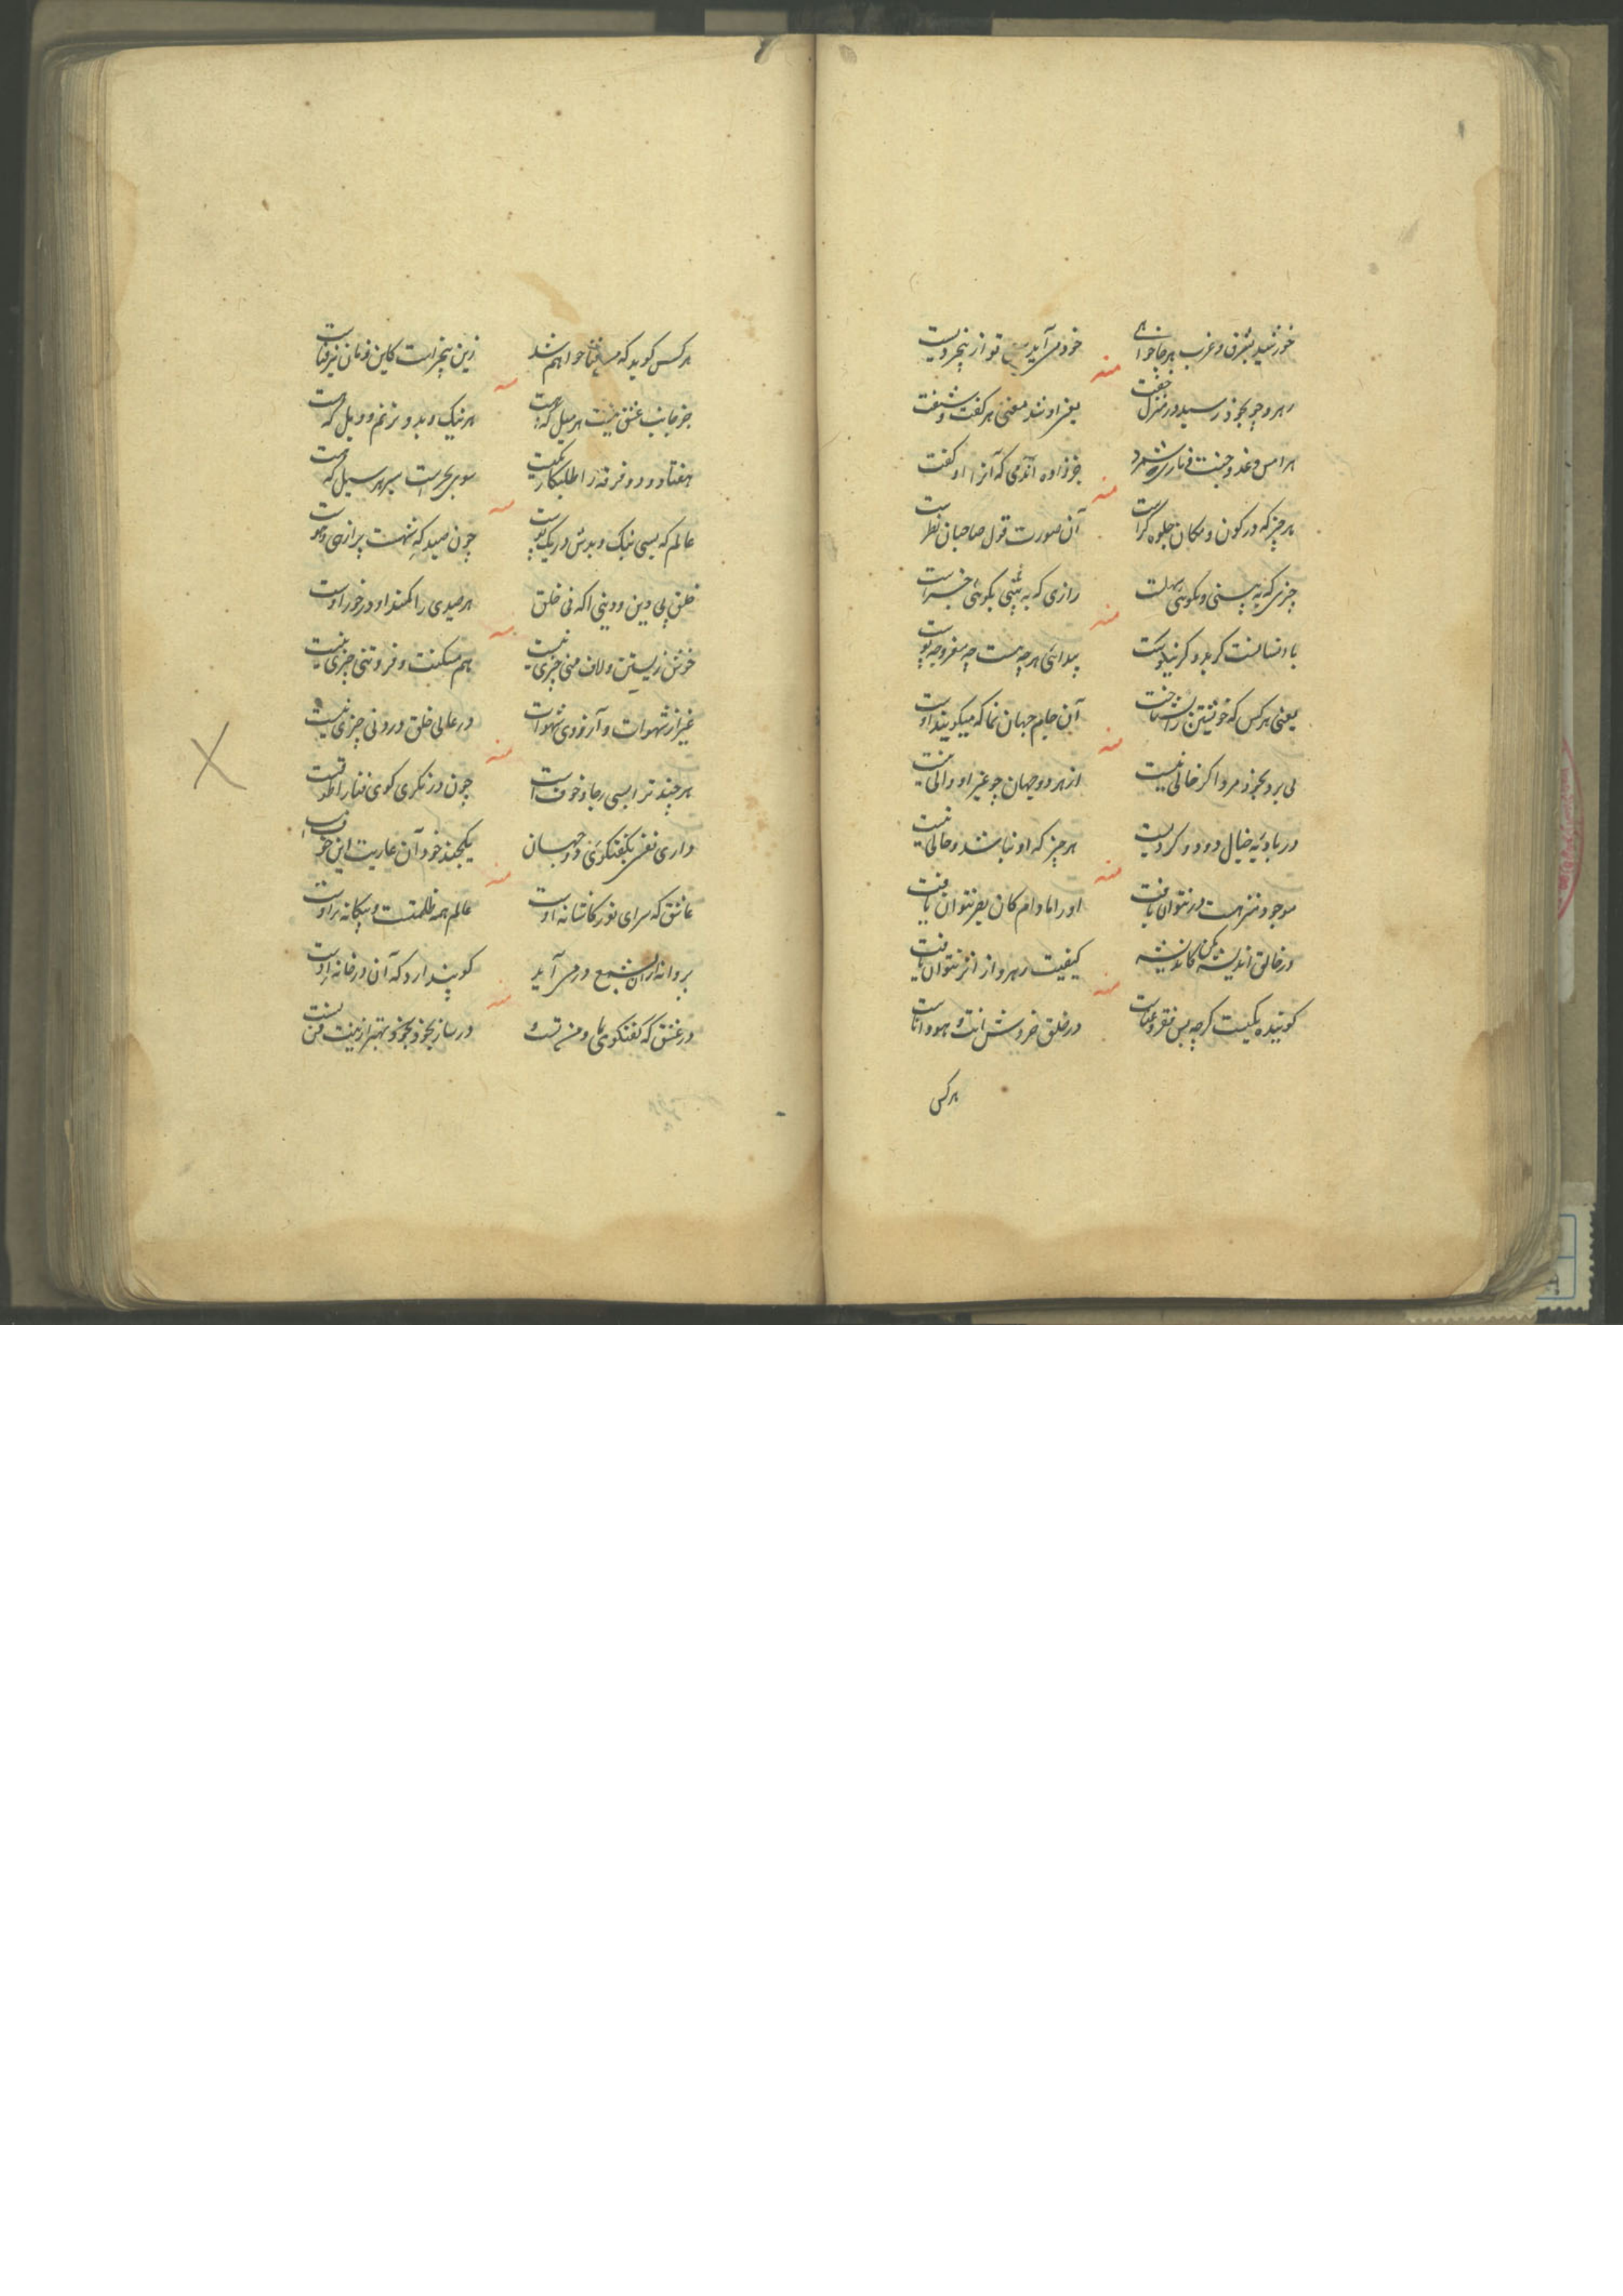 خورشید بشرق و غرب هرجا خواهی خود می آید تو از پنجره
منه
رهرو چو بخود رسید در منزل خفت یعنی او شد معنی هر گفت و شنفت
هر امس و غد و جنت و ناری شمرد جز زاده آندمی که آنرا او گفت
منه
هر چیز که در کون و مکان جلوه گر است آن صورت قول صاحبان نظر است
چیزی که به بینی و نگوئی سهلست رازی که به بینی بگوئی خبر است
منه
با انسانست گر بد و گر نیکوست پیدائی هر چه هست چه مغز و چه پوست
یعنی هر کس که خویشتن را بشناخت آن جام جهان نما که میگویند اوست
منه
پی برد بخود مرد اگر خالی نیست از هر دو جهان چو غیر او والی نیست
در بادیه خیال دود و گردیست هر چیز که او نباشد و حالی نیست
منه
موجود منزهست در نتوان یافت او را مادام کان بصر نتوان یافت
در خالق اندیشه مکن کاندیشه کیفیت رهرو از اثر نتوان یافت
منه
گوینده یکیست گرچه بس فقر و غناست در خلق خروش انت و هو و اناست
هر کس
هر کس گوید که من فنا خواهم شد زین پنجره است کاین و آن نیز فناست
منه
جز جانب عشق نیست هر میل که هست هر نیک و بد و ترنم و ویل که هست
هفتاد و دو فرقه را طلبکار یکیست سوی بحر است سیر هر سیل که هست
منه
عالم که بسی نیک و بدش در تک و پوست چون صیدگهیست پر از حی و هوست
خلق پی دین و دینی اکه نی خلق هر صیدی را کمند او در خور اوست
منه
خوش زیستن و لاف منی چیزی نیست هم مسکنت و فروتنی چیزی نیست
غیر از شهوات و آرزوی شهوات در عالی خلق و دونی چیزی نیست
منه
هر چند ترا بسی رجا و خوفست چون در نگری کوی فنا را طوفست
داری نفسی بگفتگوی دو جهان یکچند خود آن عاریت این
منه
عاشق که سرای نور کاشانه اوست عالم همه ظلمت و بیگانه بر اوست
پروانه از آن شمع در می آید کو پندارد که آن در خانه اوست
منه
در عشق که گفتگوی ما و من نیست در ساز بخود بخود بهتر ازینت فن نیست